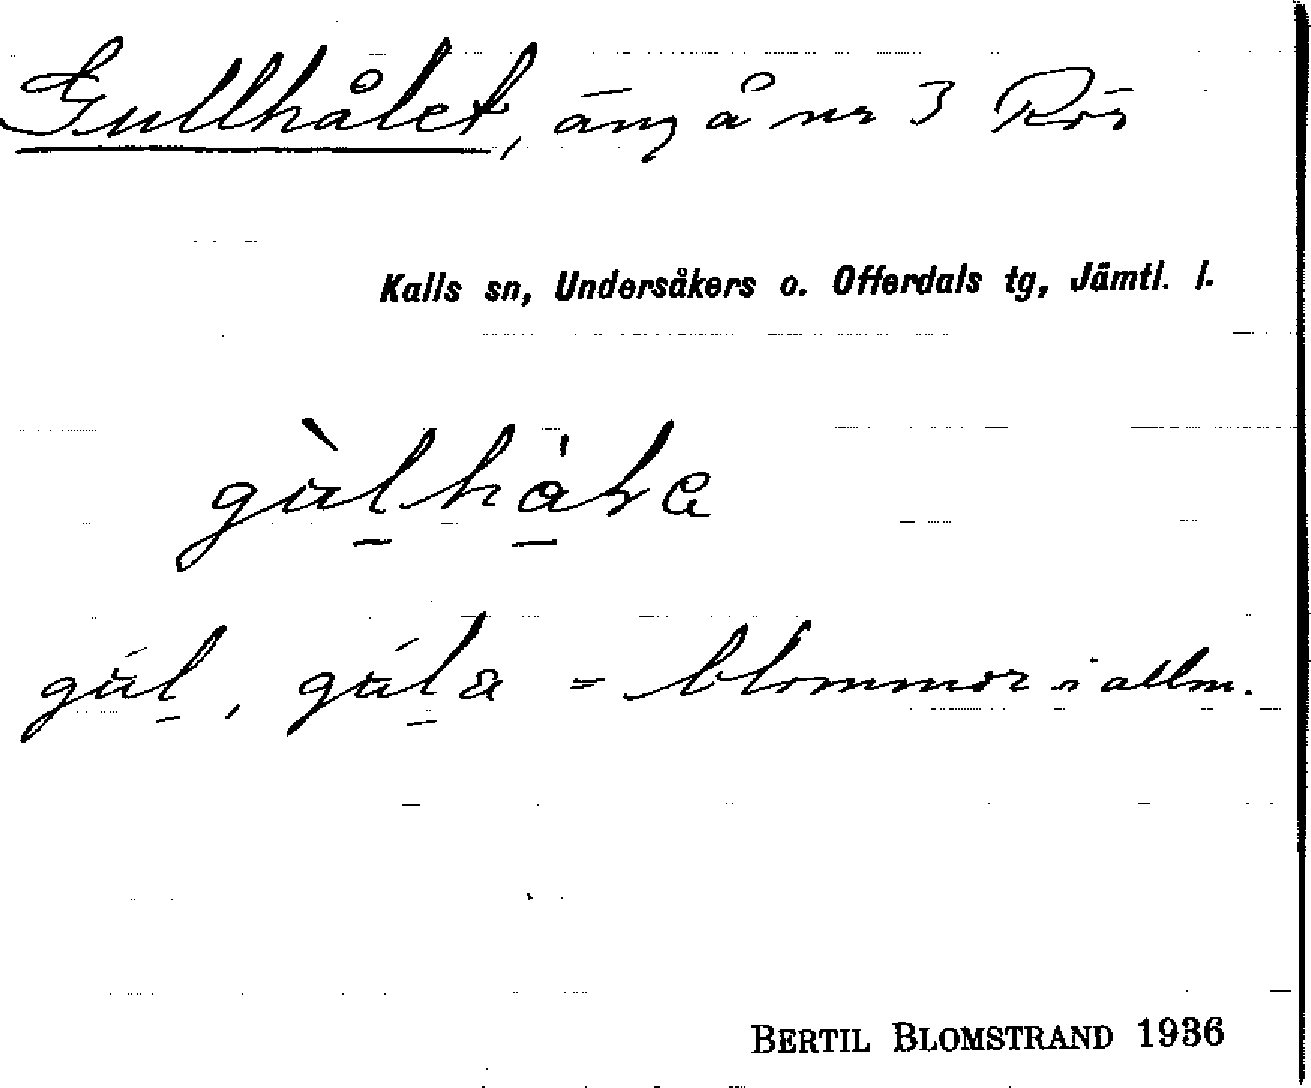 Gullhålet, äng å nr 3 Rös
Kalls sn, Undersåkers o. Offerdals tg, Jämtl. l.
gùl̠hå̠le
gúl̠, gúl̠a = blommor i allm.
BERTIL BLOMSTRAND 1936